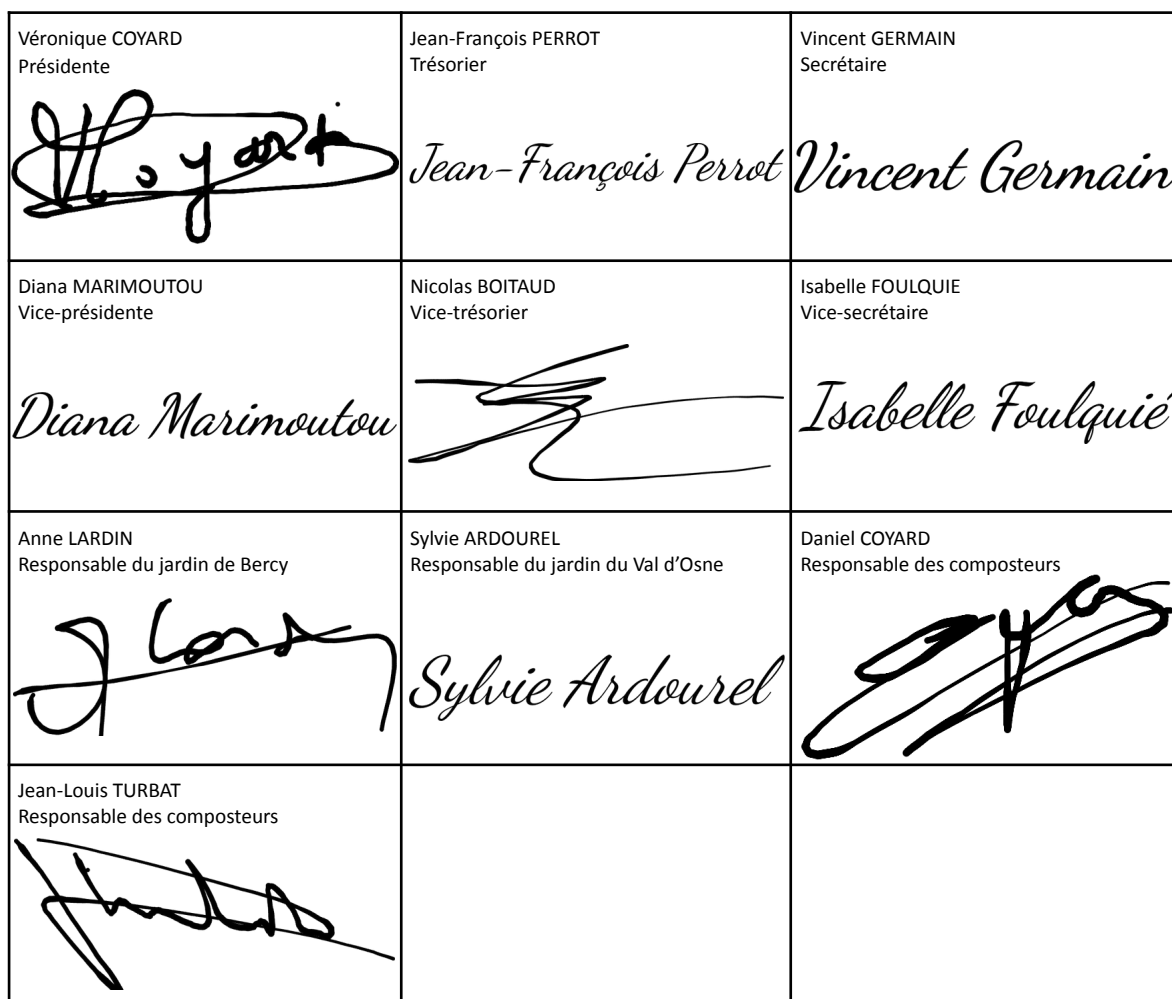 Véronique COYARD
Présidente
Jean-François PERROT
Trésorier
Jean-François Perrot
Vincent GERMAIN
Secrétaire
Vincent Germain
Diana MARIMOUTOU
Vice-présidente
Diana Marimoutou
Nicolas BOITAUD
Vice-trésorier
Isabelle FOULQUIE
Vice-secrétaire
Isabelle Foulquié
Anne LARDIN
Responsable du jardin de Bercy
Sylvie ARDOUREL
Responsable du jardin du Val d’Osne
Sylvie Ardourel
Daniel COYARD
Responsable des composteurs
Jean-Louis TURBAT
Responsable des composteurs